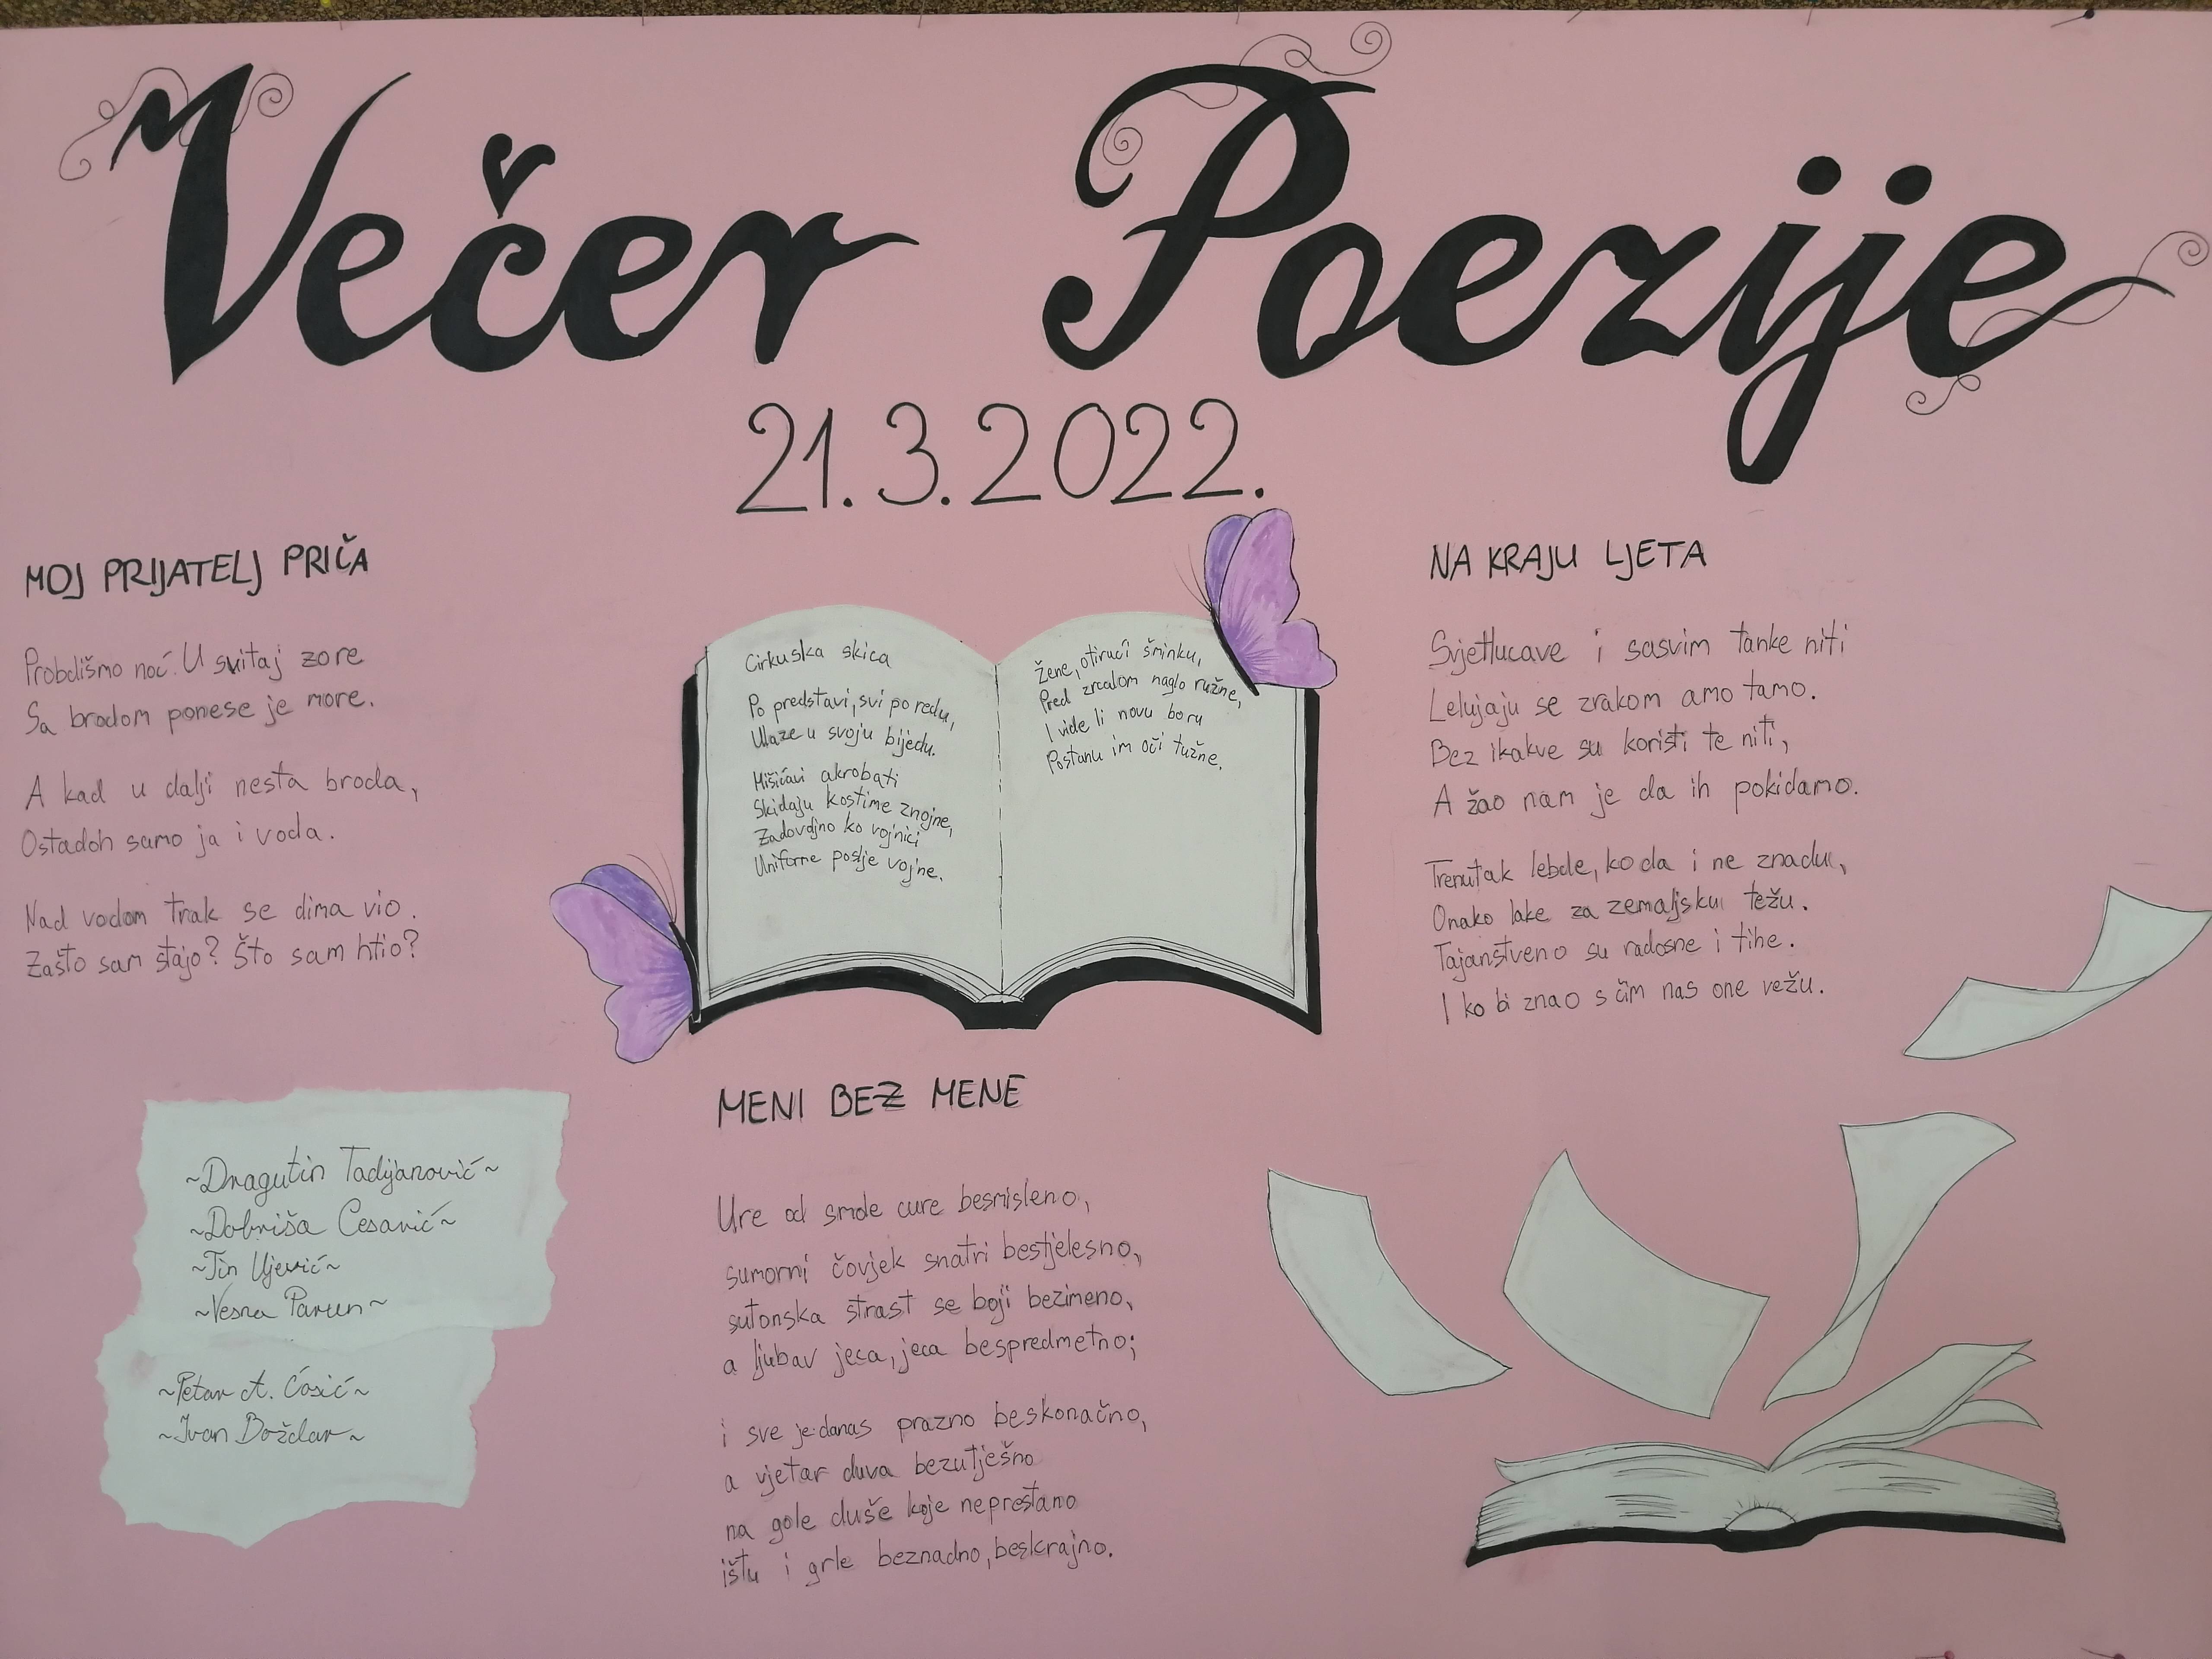 Večer Poezije
21.3.2022.
MOJ PRIJATELJ PRIČA
Probdismo noć. U svitaj zore
Sa brodom ponese je more.
A kad u dalji nesta broda,
Ostadoh samo ja i voda.
Nad vodom trak se dima vio.
Zašto sam stajo? Što sam htio?
Cirkuska skica
Po predstavi, svi po redu,
Ulaze u svoju bijedu.
Mišićavi akrobati
Skidaju kostime znojne,
Zadovoljno ko vojnici
Uniforme poslje vojne.
Žene, otirući šminku,
Pred zrcalom naglo ružne,
I vide li novu boru
Postanu im oči tužne.
NA KRAJU LJETA
Svjetlucave i sasvim tanke niti
Lelujaju se zrakom amo tamo.
Bez ikakve su koristi te niti,
A žao nam je da ih pokidamo.
Trenutak lebde, ko da i ne znadu,
Onako lake za zemaljsku težu.
Tajanstveno su radosne i tihe.
I ko bi znao s čim nas one vežu.
MENI BEZ MENE
Ure od smole cure besmisleno,
sumorni čovjek snatri bestjelesno,
sutonska strast se boji bezimeno,
a ljubav jeca, jeca bespredmetno;
i sve je danas prazno beskonačno,
a vjetar duva bezutješno
na gole duše koje neprestano
ištu i grle beznadno, beskrajno.
~Dragutin Tadijanović~
~Dobriša Cesarić~
~Tin Ujević~
~Vesna Parun~
~Petar A. Ćosić~
~Ivan Boždar~